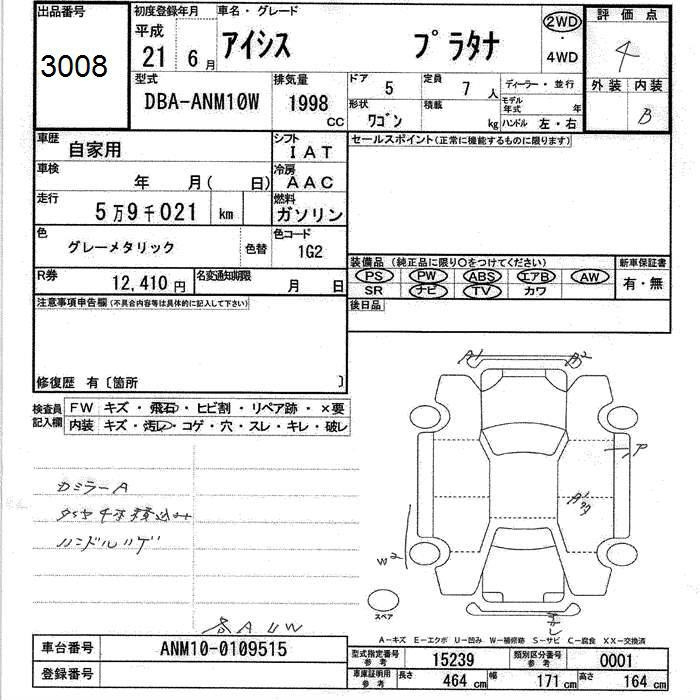 出品番号
3008
初度登録年月
平成
21年 6月
車名・グレード
アイシス プラタナ
2WD
・
4WD
評価点
4
外装 内装
B
型式
DBA-ANM10W
排気量
1998
CC
ドア 5
定員 7人
形状 ワゴン
積載 kg
ディーラー・並行
モデル年式 年
ハンドル 左・右
車歴
自家用
シフト
IAT
セールスポイント(正常に機能するものに限ります)
車検
年 月( 日)
冷房
AAC
走行
5万9千021 km
燃料
ガソリン
色
グレーメタリック
色替
色コード
1G2
装備品 (純正品に限り〇をつけてください)
新車保証書
PS PW ABS エアB AW
有・無
SR ナビ TV カワ
R券
12,410円
名変通知期限
月 日
後日品
注意事項申告欄(不具合内容等は具体的に記入して下さい)
修復歴 有〔箇所 〕
検査員
記入欄
FW キズ・飛石・ヒビ割・リペア跡・×要
内装 キズ・汚レ・コゲ・穴・スレ・キレ・破レ
A1 A2
ミラーA
ハンドルハゲ
W2
スペア
A-キズ E-エクボ U-凹み W-補修跡 S-サビ C-腐食 XX-交換済
車台番号
ANM10-0109515
登録番号
型式指定番号
参考
15239
類別区分番号
参考
0001
車庫証明用
参考
長さ 464cm
幅 171cm
高さ 164cm